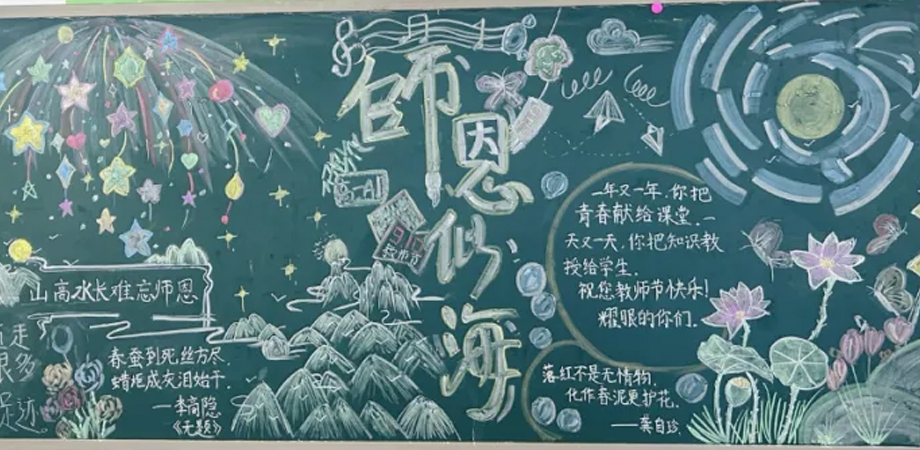 師恩似海
山高水长难忘师恩
春蚕到死丝方尽,
蜡炬成灰泪始干.
—李商隐
《无题》
一年又一年,你把
青春献给课堂.一
天又一天,你把知识教
授给学生.
祝您教师节快乐!
耀眼的你们.
落红不是无情物,
化作春泥更护花.
——龚自珍
走
很多
足迹